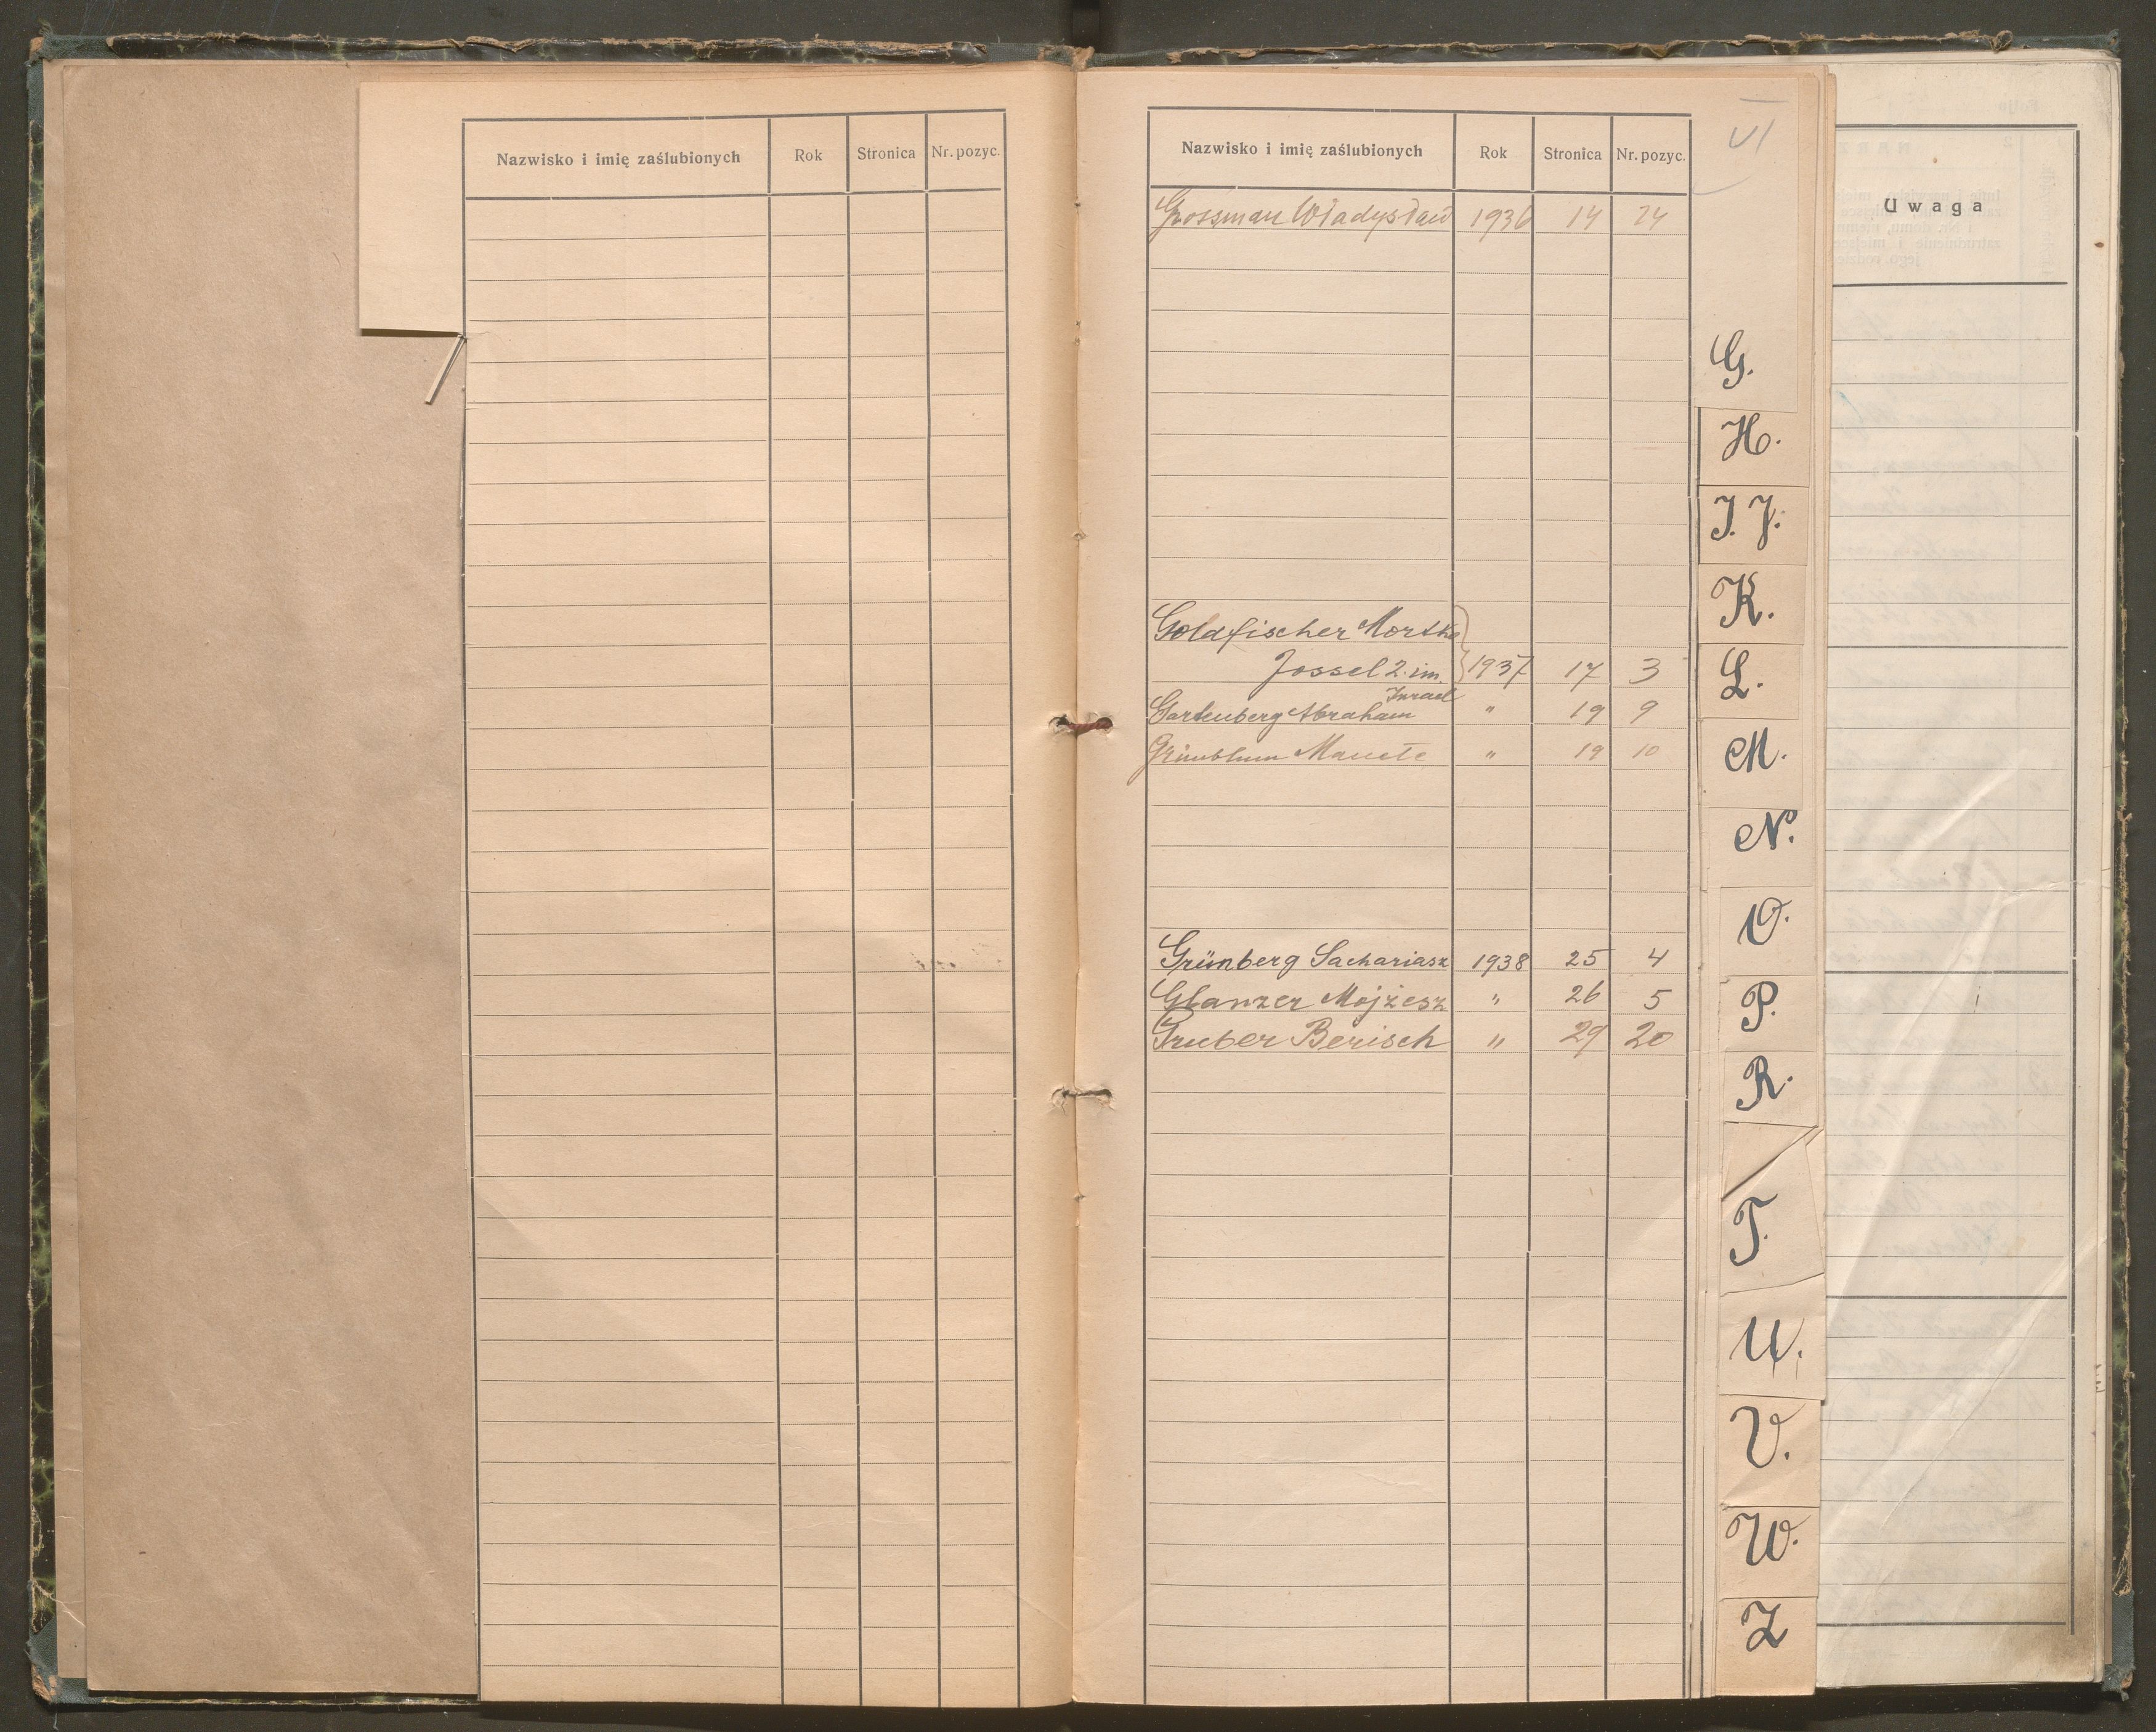 Nazwisko i imię zaślubionych Rok Stronica Nr. pozyc.
Nazwisko i imię zaślubionych Rok Stronica Nr. pozyc.
VI
Uwaga
Grossman Władysław 1936 14 24
G.
H.
I. J.
K.
Goldfischer Mortke
Jossel 2. im. 1937 17 3
L.
Israel
Gartenberg Abraham " 19 9
Grünblum " 19 10
M.
N.
O.
Grünberg Sachariasz 1938 25 4
Glanzer Mojżesz " 26 5
P.
Gruber Berisch " 29 20
R.
T.
U.
V.
W.
Z